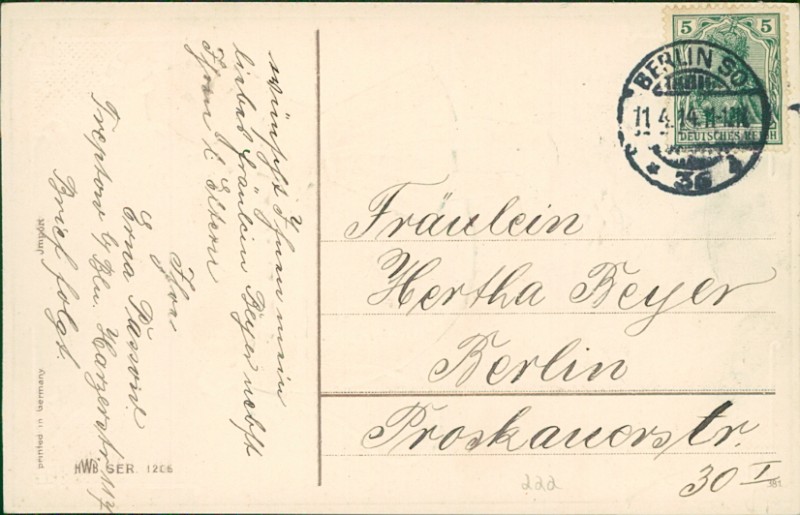 wünscht Ihnen mein
liebes Fräulein Beyer nebst
Ihren l. Eltern
Ihre
Erna
Treptow b/ Bln. Harzerstr. 117
Brief folgt.
Fräulein
Hertha Beyer
Berlin
Proskauerstr.
30 I
5 5
DEUTSCHES REICH
BERLIN SO
11.4.14.11-12
* 36
Import
printed in Germany
HWB SER. 1206
222
381